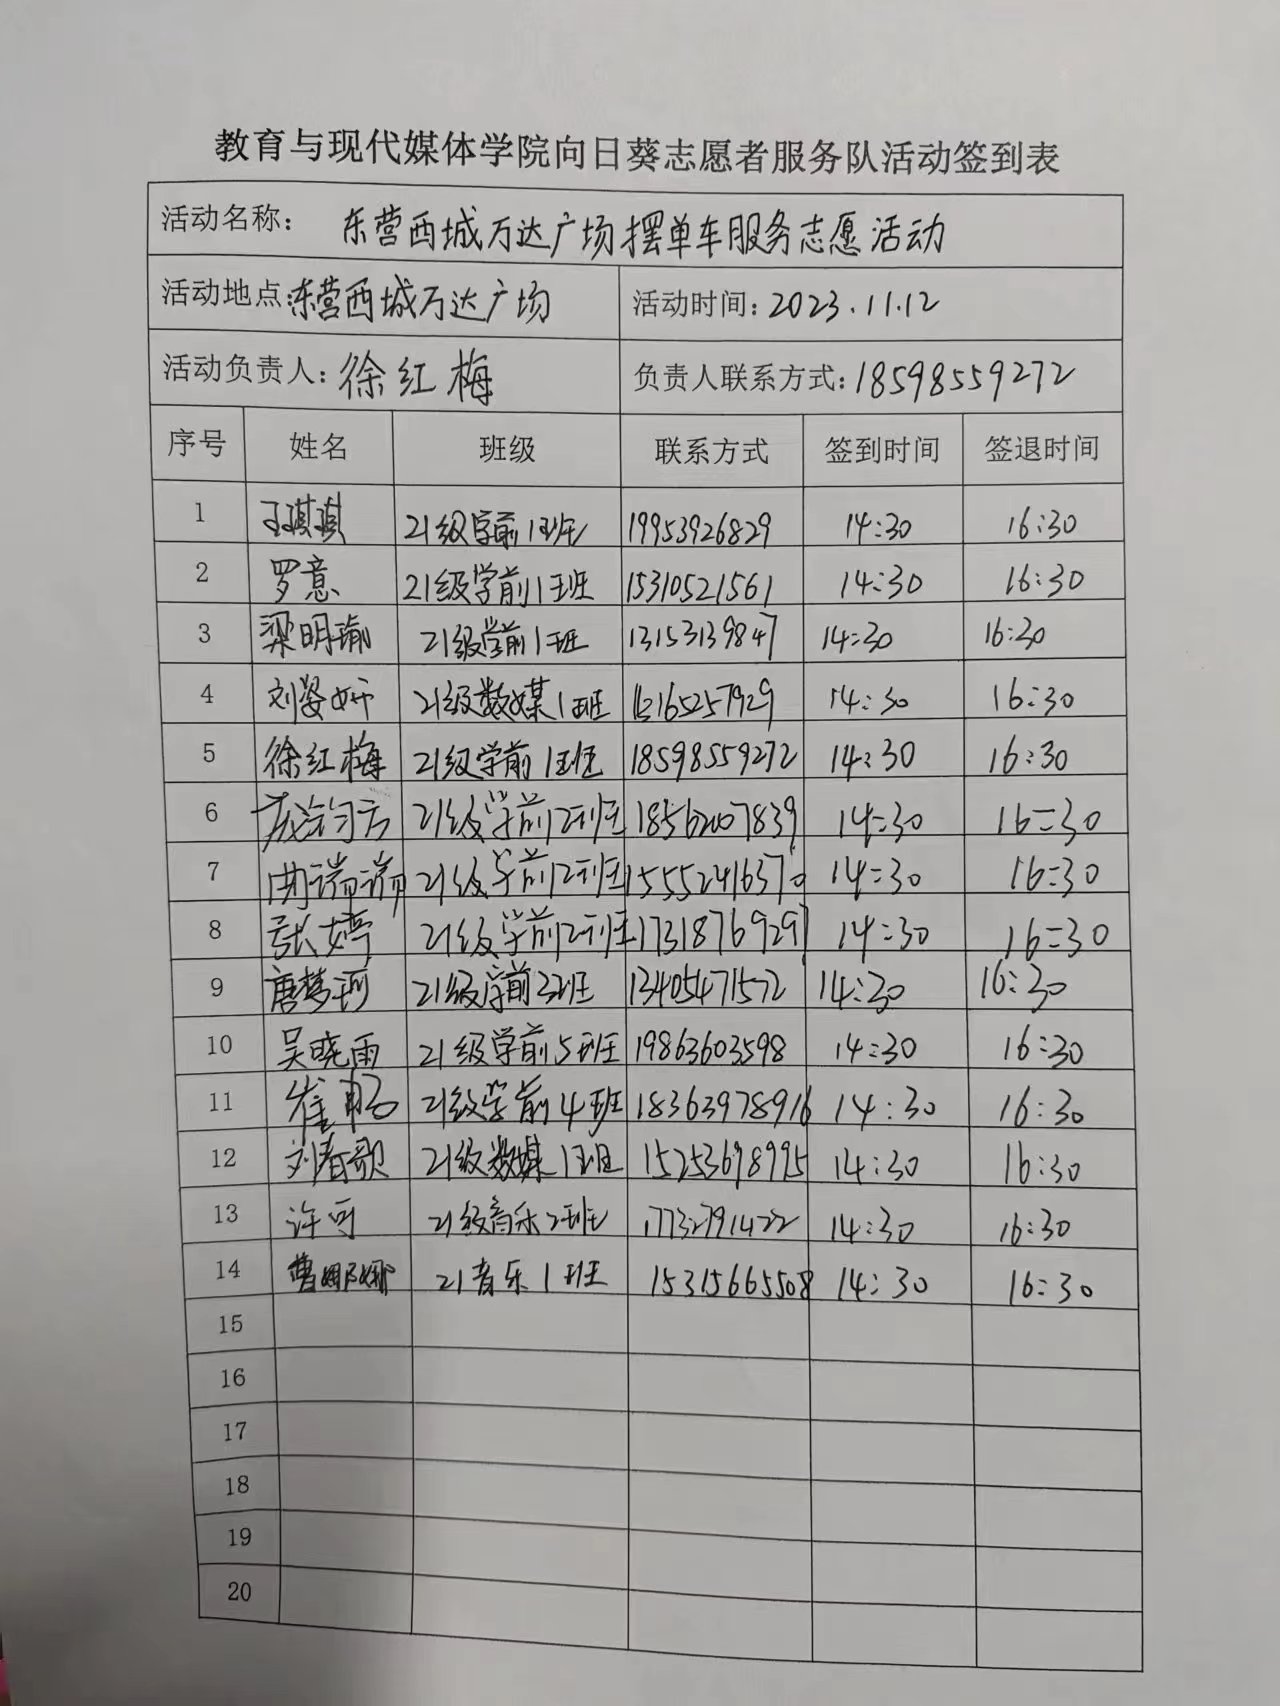 教育与现代媒体学院向日葵志愿者服务队活动签到表
活动名称： 东营西城万达广场摆单车服务志愿活动
活动地点：东营西城万达广场 活动时间：2023.11.12
活动负责人：徐红梅 负责人联系方式：18598559272
序号 姓名 班级 联系方式 签到时间 签退时间
1 王琪琪 21级学前1班 19953926829 14:30 16:30
2 罗意 21级学前1班 15310521561 14:30 16:30
3 梁明瑜 21级学前1班 13153139847 14:30 16:30
4 刘姿妍 21级数媒1班 14:30 16:30
5 徐红梅 21级学前1班 18598559272 14:30 16:30
6 21级学前2班 18562007839 14:30 16:30
7 曲瑞瑞 21级学前2班 15552416370 14:30 16:30
8 张婷 21级学前2班 17318769297 14:30 16:30
9 唐梦珂 21级学前3班 13405471572 14:30 16:30
10 吴晓雨 21级学前5班 19863603598 14:30 16:30
11 崔 21级学前4班 18363978916 14:30 16:30
12 刘春歌 21级数媒1班 15253698995 14:30 16:30
13 许可 21级音乐2班 17732791422 14:30 16:30
14 曹娜娜 21音乐1班 15315665508 14:30 16:30
15
16
17
18
19
20